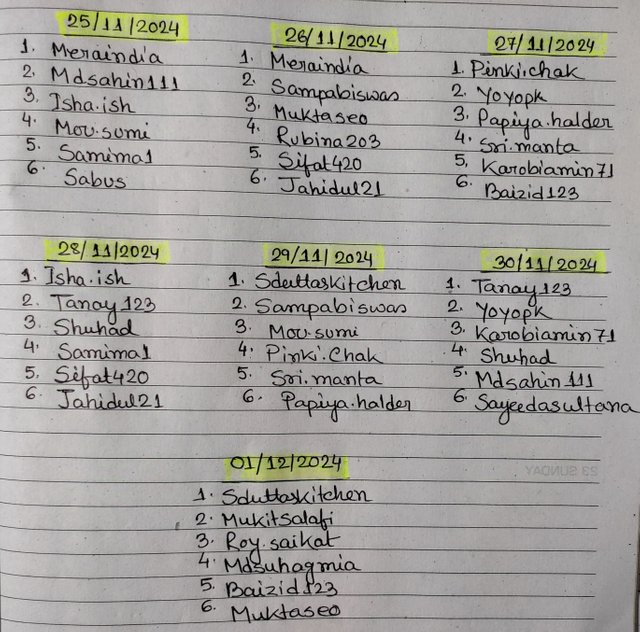 25/11/2024
1. Meraindia
2. Mdsahin111
3. Isha.ish
4. Mou.sumi
5. Samima1
6. Sabus
26/11/2024
1. Meraindia
2. Sampabiswas
3. Muktaseo
4. Rubina203
5. Sifat420
6. Jahidul21
27/11/2024
1. Pinki.chak
2. Yoyopk
3. Papiya.halder
4. Sri.manta
5. Karobiamin71
6. Baizid123
28/11/2024
1. Isha.ish
2. Tanay123
3. Shuhad
4. Samima1
5. Sifat420
6. Jahidul21
29/11/2024
1. Sduttaskitchen
2. Sampabiswas
3. Mou.sumi
4. Pinki.Chak
5. Sri.manta
6. Papiya.halder
30/11/2024
1. Tanay123
2. Yoyopk
3. Karobiamin71
4. Shuhad
5. Mdsahin111
6. Sayeedasultana
23 SUNDAY
01/12/2024
1. Sduttaskitchen
2. Mukitsalafi
3. Roy.saikat
4. Mdsuhagmia
5. Baizid123
6. Muktaseo